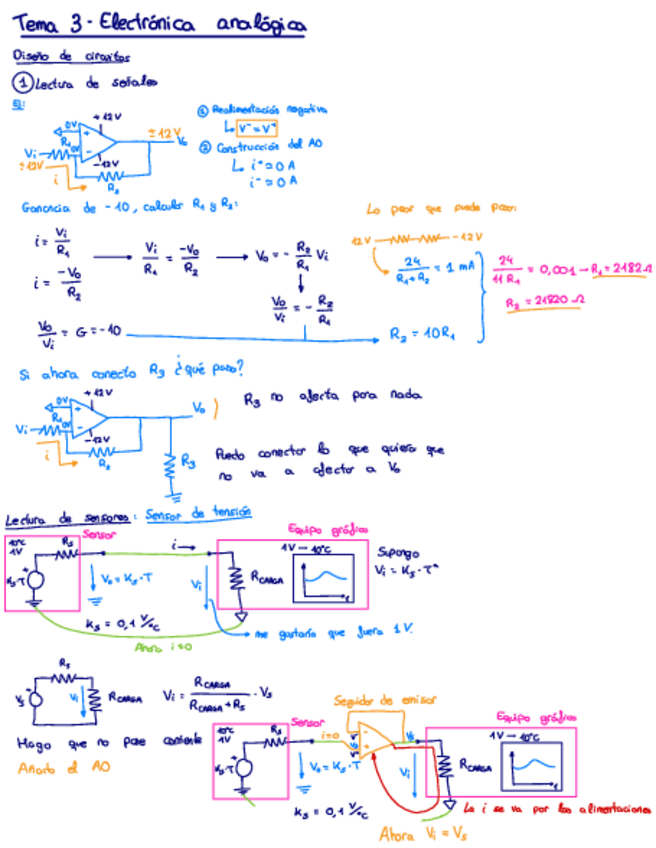 Tema 3 - Electrónica analógica
Diseño de circuitos
① Lectura de señales
Ej:
+12V
0V
R₁
0V
Vi
±12V
i
-12V
R₂
±12V
Vo
① Realimentación negativa
↳ V⁻ = V⁺
② Construcción del AO
↳ i⁺ ≈ 0 A
i⁻ ≈ 0 A
Ganancia de -10, calcular R₁ y R₂:
Lo peor que puede pasar:
i = Vi/R₁
i = -Vo/R₂
Vi/R₁ = -Vo/R₂
Vo = - R₂/R₁ Vi
Vo/Vi = - R₂/R₁
Vo/Vi = G = -10
12V -12V
24/(R₁+R₂) = 1 mA
R₂ = 10R₁
24/11R₁ = 0,001 → R₁ = 2182Ω
R₂ = 21820 Ω
Si ahora conecto R₃ ¿qué pasa?
+12V
0V
R₁
0V
Vi
i
-12V
R₂
Vo
R₃
R₃ no afecta para nada
Puedo conectar lo que quiera que
no va a afectar a Vo
Lectura de sensores: Sensor de tensión
Sensor
10°C
1V
Rs
Ks·T
Vo = Ks · T
Ks = 0,1 V/°C
i →
Vi
Equipo gráfico
1V - 10°C
RCARGA
t
Supongo
Vi = Ks · Tª
me gustaría que fuera 1V.
Ahora i≈0
Rs
Vs
Vi
RCARGA
Vi = RCARGA/(RCARGA + Rs) · Vs
Hago que no pase corriente
Añado el AO
Seguidor de emisor
Sensor
10°C
1V
Rs
Ks·T
i=0
Vo = Ks · T
Ks = 0,1 V/°C
Vo
Vi
Equipo gráfico
1V - 10°C
RCARGA
La i se va por las alimentaciones
Ahora Vi = Vs